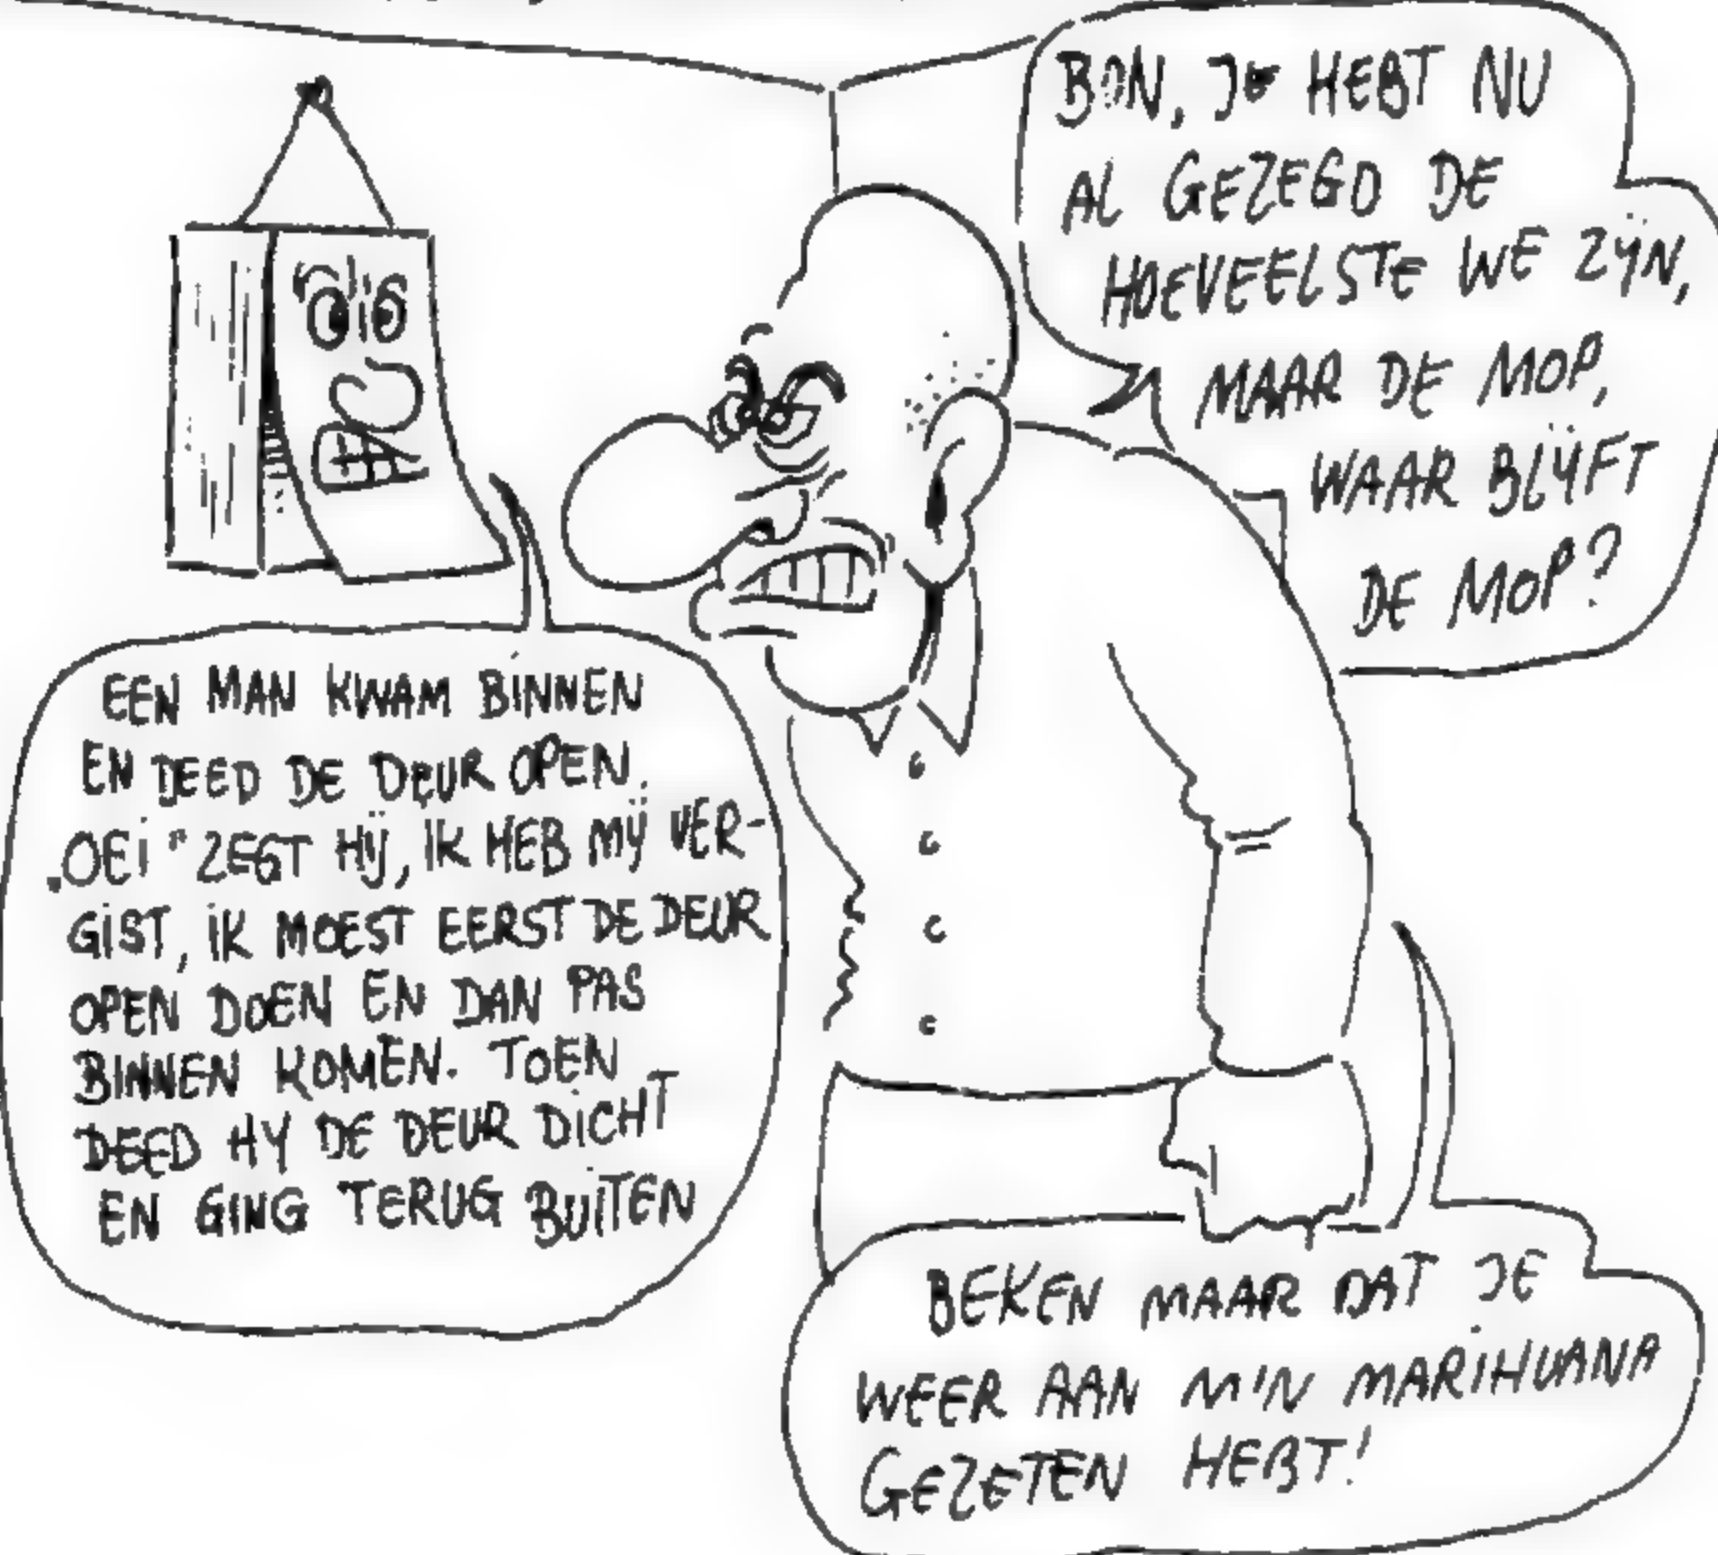 BON, JE HEBT NU
AL GEZEGD DE
HOEVEELSTE WE ZIJN,
MAAR DE MOP,
WAAR BLIJFT
DE MOP?
EEN MAN KWAM BINNEN
EN DEED DE DEUR OPEN.
„OEI" ZEGT HIJ, IK HEB MIJ VER-
GIST, IK MOEST EERST DE DEUR
OPEN DOEN EN DAN PAS
BINNEN KOMEN. TOEN
DEED HY DE DEUR DICHT
EN GING TERUG BUITEN
BEKEN MAAR DAT JE
WEER AAN M'N MARIHUANA
GEZETEN HEBT!